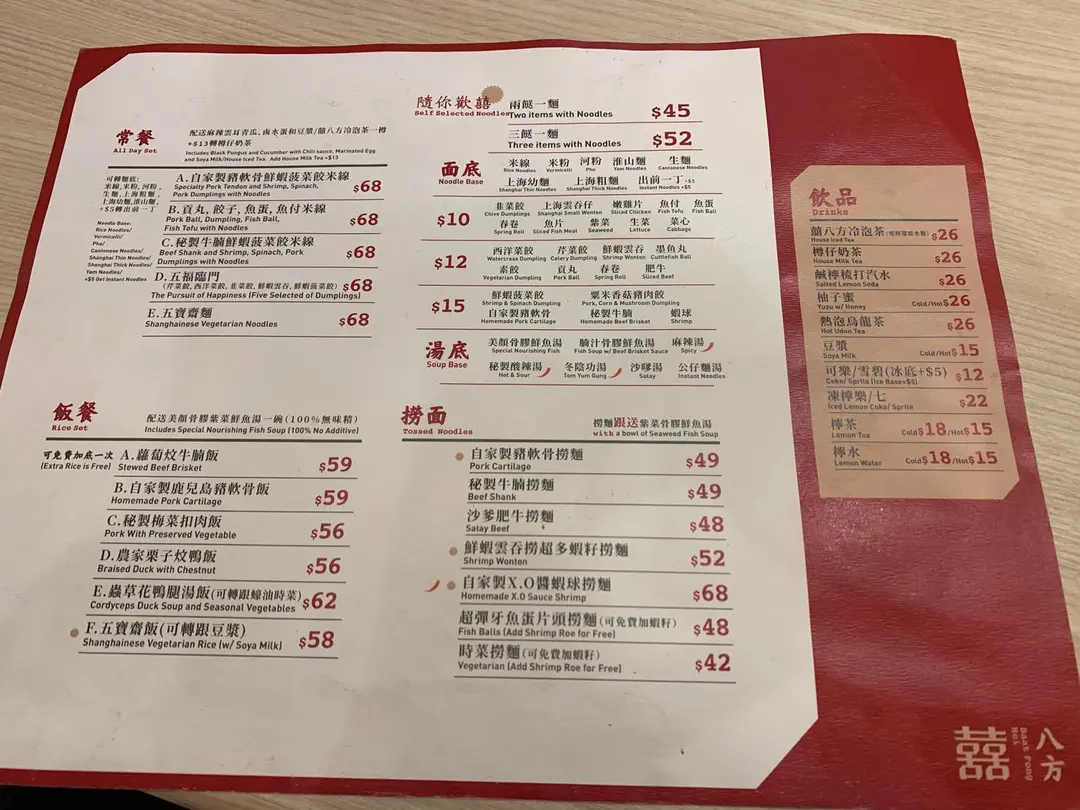 常餐
All Day Set
配送麻辣雲耳青瓜、鹵水蛋和豆漿/囍八方冷泡茶一樽
+$13轉樽仔奶茶
Includes Black Fungus and Cucumber with Chili sauce, Marinated Egg
and Soya Milk/House Iced Tea. Add House Milk Tea +$13
可轉麵底:
米線,米粉,河粉,
生麵,上海粗麵,
上海幼麵,淮山麵,
+$5轉出前一丁
Noodle Base:
Rice Noodles/
Vermicelli/
Pha/
Cantonese Noodles/
Shanghai Thin Noodles/
Shanghai Thick Noodles/
Yam Noodles/
+$5 Get Instant Noodles
A.自家製豬軟骨鮮蝦菠菜餃米線
Specialty Pork Tendon and Shrimp, Spinach,
Pork Dumplings with Noodles
$68
B.貢丸, 餃子, 魚蛋, 魚付米線
Pork Ball, Dumpling, Fish Ball,
Fish Tofu with Noodles
$68
C.秘製牛腩鮮蝦菠菜餃米線
Beef Shank and Shrimp, Spinach, Pork
Dumplings with Noodles
$68
D.五福臨門
(芹菜餃, 西洋菜餃, 韭菜餃, 鮮蝦雲吞, 鮮蝦菠菜餃)
The Pursuit of Happiness (Five Selected of Dumplings)
$68
E.五寶齋麵
Shanghainese Vegetarian Noodles
$68
飯餐
Rice Set
配送美顏骨膠紫菜鮮魚湯一碗(100%無味精)
Includes Special Nourishing Fish Soup (100% No Additive)
可免費加底一次
(Extra Rice is Free)
A.蘿蔔炆牛腩飯
Stewed Beef Brisket
$59
B.自家製鹿兒島豬軟骨飯
Homemade Pork Cartilage
$59
C.秘製梅菜扣肉飯
Pork With Preserved Vegetable
$56
D.農家栗子炆鴨飯
Braised Duck with Chestnut
$56
E.蟲草花鴨腿湯飯(可轉跟蠔油時菜)
Cordyceps Duck Soup and Seasonal Vegetables
$62
F.五寶齋飯(可轉跟豆漿)
Shanghainese Vegetarian Rice (w/ Soya Milk)
$58
隨你歡囍
Self Selected Noodles
兩餸一麵
Two items with Noodles
$45
三餸一麵
Three items with Noodles
$52
面底
Noodle Base
米線 米粉 河粉 淮山麵 生麵
Rice Noodles Vermicelli Pho Yam Noodles Cantonese Noodles
上海幼麵 上海粗麵 出前一丁+$5
Shanghai Thin Noodles Shanghai Thick Noodles Instant Noodles +$5
$10
韭菜餃 上海雲吞仔 嫩雞片 魚付 魚蛋
Chive Dumplings Shanghai Small Wonton Sliced Chicken Fish Tofu Fish Ball
春卷 魚片 紫菜 生菜 菜心
Spring Roll Sliced Fish Seaweed Lettuce Cabbage
$12
西洋菜餃 芹菜餃 鮮蝦雲吞 墨魚丸
Watercress Dumpling Celery Dumpling Shrimp Wonton Cuttlefish Ball
素餃 貢丸 春卷 肥牛
Vegetarian Dumpling Pork Ball Spring Roll Sliced Beef
$15
鮮蝦菠菜餃 粟米香菇豬肉餃
Shrimp & Spinach Dumpling Pork, Corn & Mushroom Dumpling
自家製豬軟骨 秘製牛腩 蝦球
Homemade Pork Cartilage Homemade Beef Brisket Shrimp
湯底
Soup Base
美顏骨膠鮮魚湯 腩汁骨膠鮮魚湯 麻辣湯
Special Nourishing Fish Fish Soup w/ Beef Brisket Sauce Spicy
秘製酸辣湯 冬陰功湯 沙嗲湯 公仔麵湯
Hot & Sour Tom Yum Gung Satay Instant Noodles
撈面
Tossed Noodles
撈麵跟送紫菜骨膠鮮魚湯
with a bowl of Seaweed Fish Soup
自家製豬軟骨撈麵
Pork Cartilage
$49
秘製牛腩撈麵
Beef Shank
$49
沙爹肥牛撈麵
Satay Beef
$48
鮮蝦雲吞撈超多蝦籽撈麵
Shrimp Wonton
$52
自家製X.O醬蝦球撈麵
Homemade X.O Sauce Shrimp
$68
超彈牙魚蛋片頭撈麵(可免費加蝦籽)
Fish Balls (Add Shrimp Roe for Free)
$48
時菜撈麵(可免費加蝦籽)
Vegetarian (Add Shrimp Roe for Free)
$42
飲品
Drinks
囍八方冷泡茶
House Iced Tea
$26
樽仔奶茶
House Milk Tea
$26
鹹檸梳打汽水
Salted Lemon Soda
$26
柚子蜜
Yuzu w/ Honey
Cold/Hot$26
熱泡烏龍茶
Hot Udon Tea
$26
豆漿
Soya Milk
Cold/Hot$15
可樂/雪碧(冰底+$5)
Coke/ Sprite (Ice Base+$5)
$12
凍檸樂/七
Iced Lemon Coke/ Sprite
$22
檸茶
Lemon Tea
Cold$18/Hot$15
檸水
Lemon Water
Cold$18/Hot$15
囍
八方